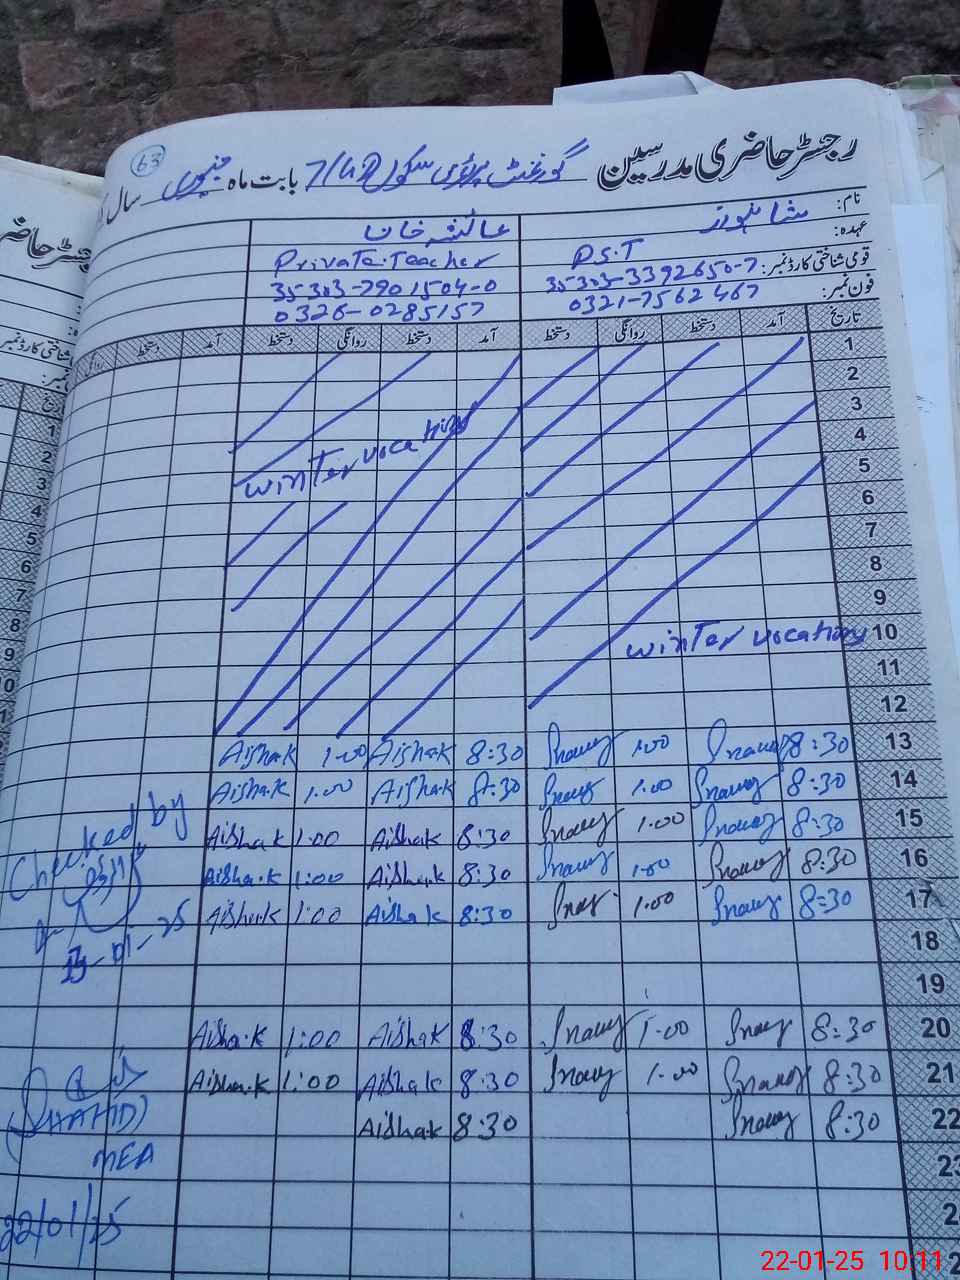 63
رجسٹر حاضری مدرسین گورنمنٹ پرائمری سکول 7/4R بابت ماہ جنوری سال
نام: شاہنواز عائشہ خان
عہدہ: P.S.T Private.Teacher
قومی شناختی کارڈ نمبر: 35303-3392650-7 35303-7901504-0
فون نمبر: 0321-7562467 0326-0285157
تاریخ آمد دستخط روانگی دستخط آمد دستخط روانگی دستخط آمد دستخط روانگی
1
2
3
winter vocation
4
5
6
7
8
9
10 winter vocation
11
12
13 8:30 Snawaz 1.00 Snawaz 8:30 Aisha.k 1.00 Aisha.k
14 8:30 Snawaz 1.00 Snawaz 8:30 Aisha.k 1.00 Aisha.k
15 8:30 Snawaz 1.00 Snawaz 8:30 Aisha.k 1:00 Aisha.k
16 8:30 Snawaz 1.00 Snawaz 8:30 Aisha.k 1:00 Aisha.k
17 8:30 Snawaz 1.00 Snaz 8:30 Aisha.k 1:00 Aisha.k
Checked by
-01-25
18
19
20 8:30 Snawaz 1.00 Snawaz 8:30 Aisha.k 1:00 Aisha.k
21 8:30 Snawaz 1.00 Snawaz 8:30 Aisha.k 1:00 Aisha.k
22 8:30 Snawaz 8:30 Aisha.k
(SHAHID)
MEA
23
22/01/25
22-01-25 10:11